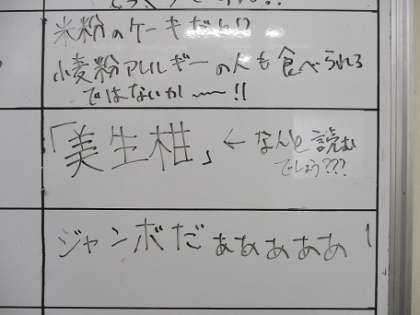 米粉のケーキだと!?
小麦粉アレルギーの人も食べられる
ではないか〜〜!!
「美生柑」← なんと読む
でしょう???
ジャンボだぁぁぁぁぁ!